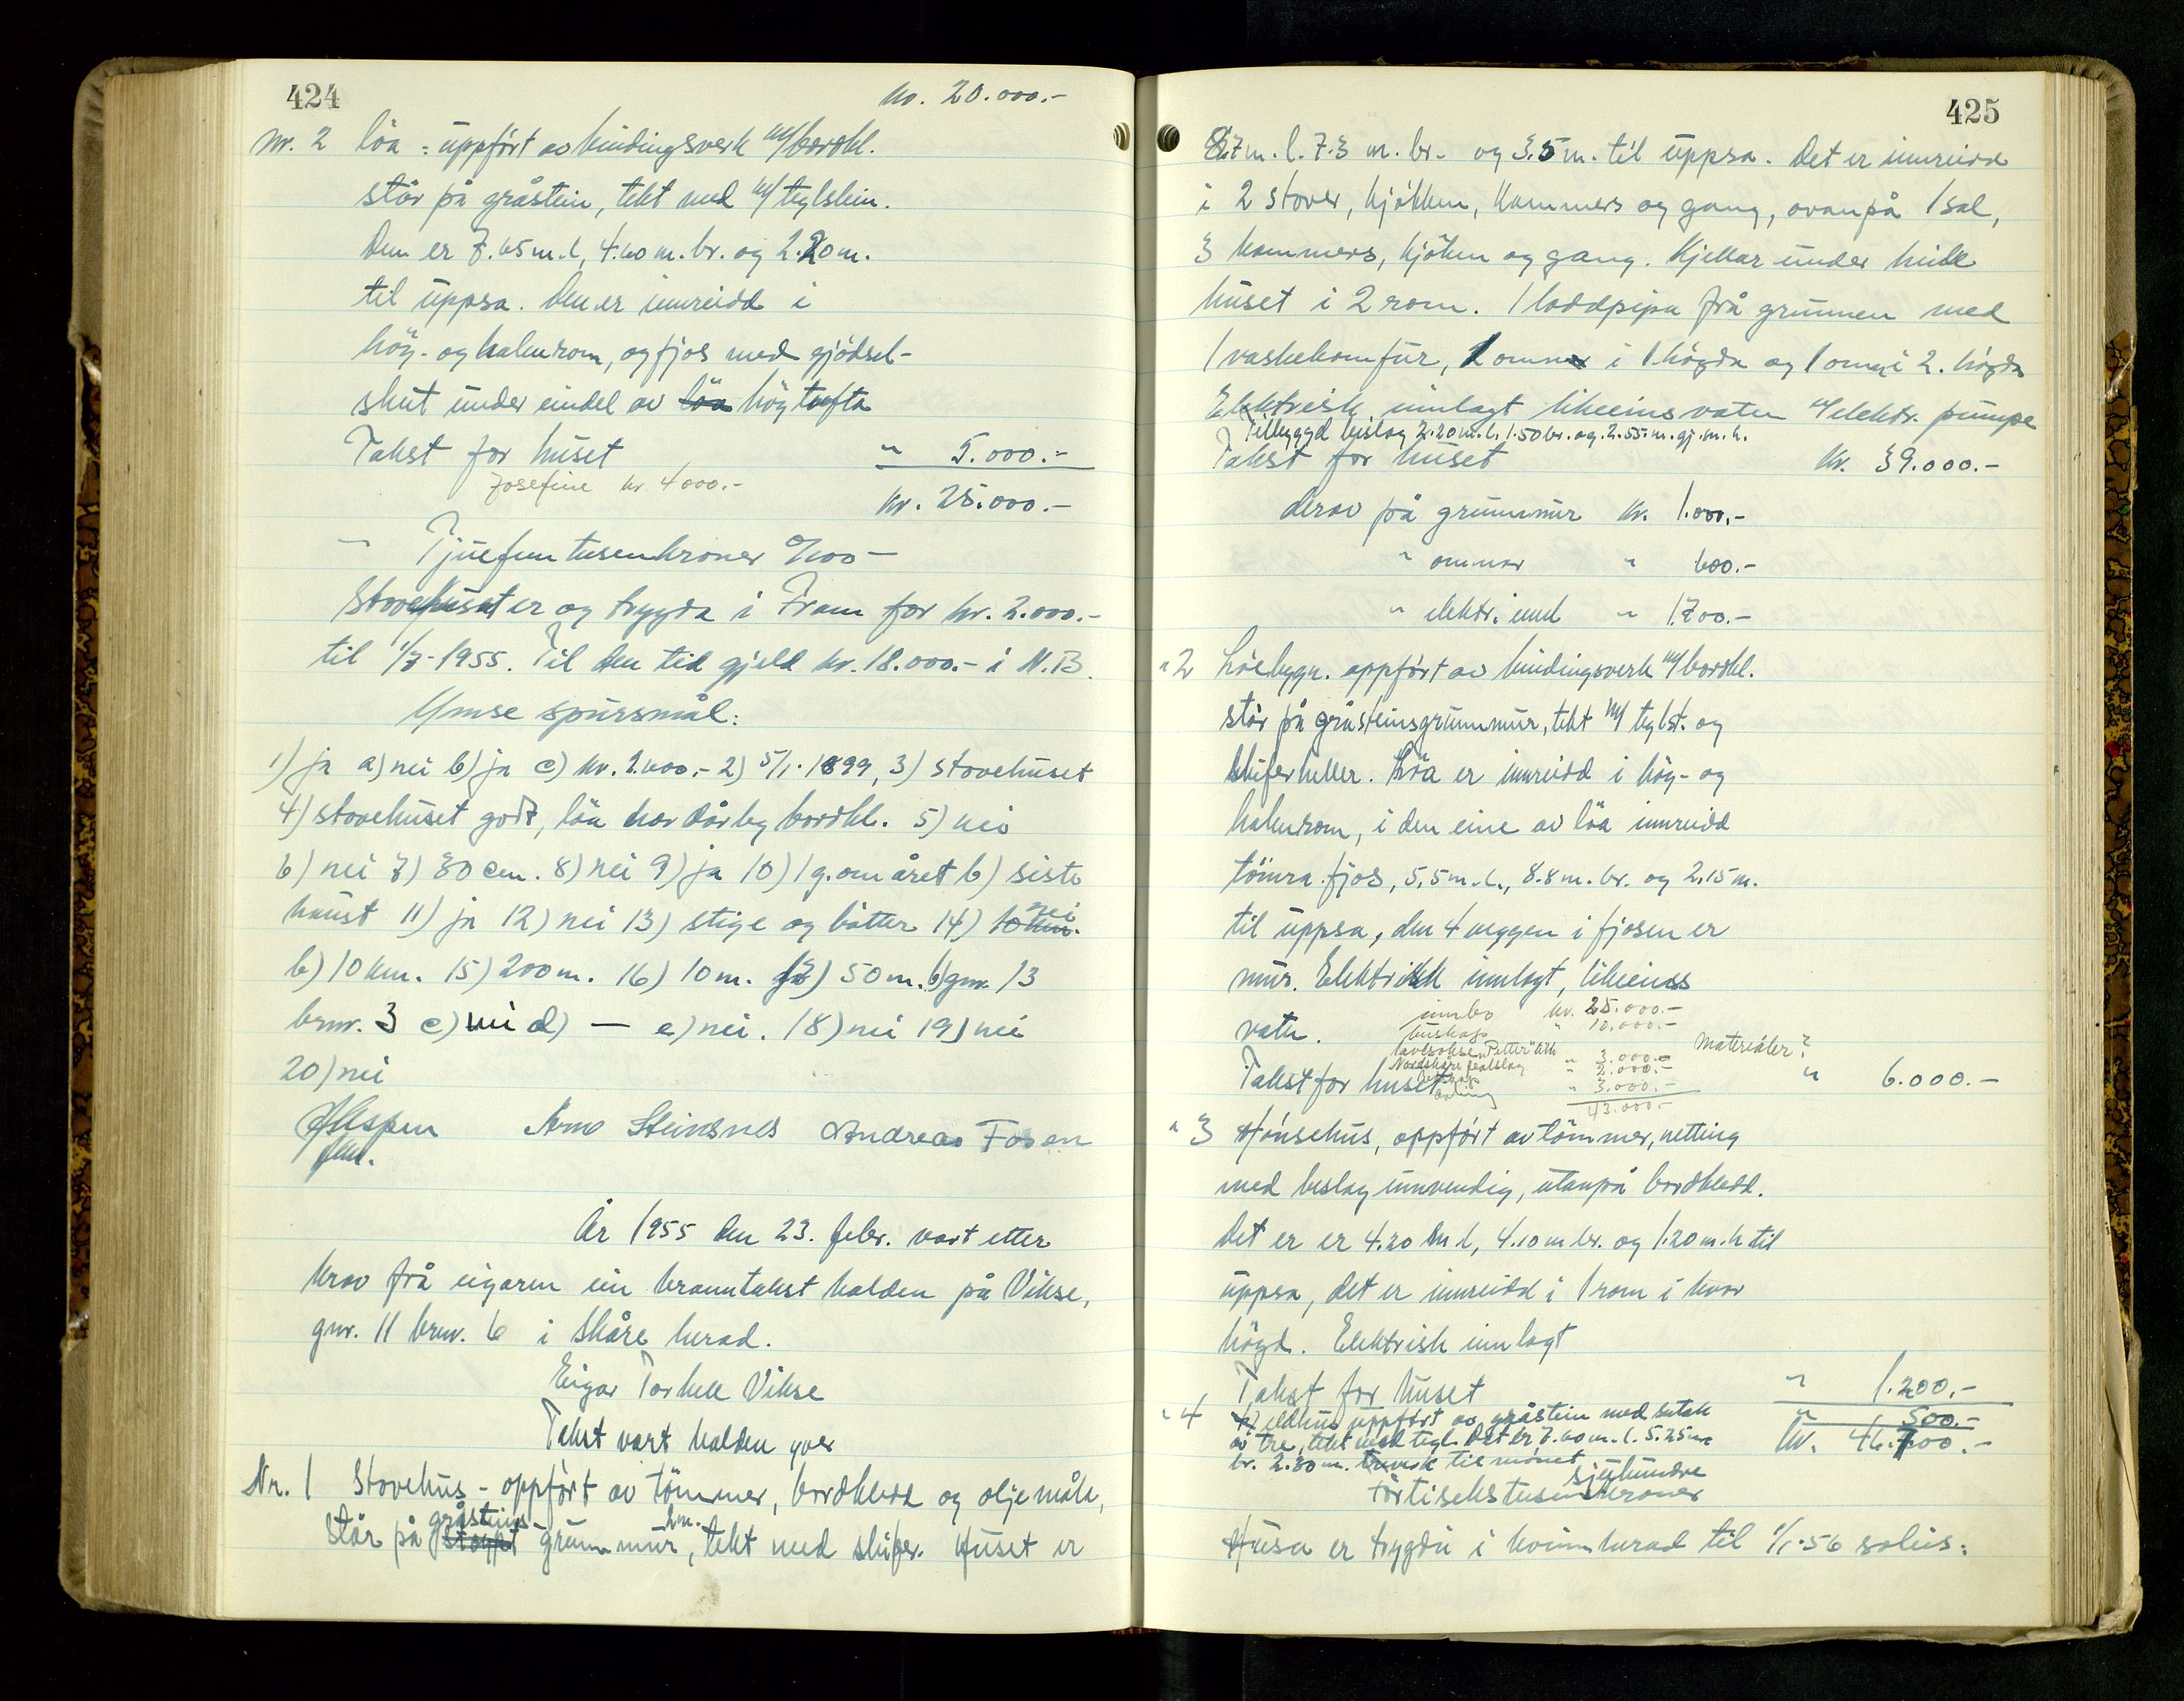 424
kr. 20.000.-
Nr. 2 Löa = uppført av bindingsverk m/bordkl.
står på gråstein, tekt med m/ teglstein.
Den er 7.65 m. l, 4.60 m. br. og 2.20 m.
til uppsa. Den er innreidd i
höy- og halmrom, og fjos med gjödsel-
skut under eindel av löa höytufta
Takst for huset " 5.000.-
Josefine kr 4000.-
kr. 25.000.-
- Tjuefem tusen kroner 0/100 -
Stovehuset er og trygda i Fram for kr. 2.000.-
til 1/7-1955. Til den tid gjeld kr. 18.000.- i N.B.
Ymse spursmål:
1) ja a) nei b) ja c) kr. 2.000.- 2) 5/1.1899, 3) stovehuset
4) stovehuset godt, löa har dårleg bordkl. 5) nei
6) nei 7) 30 cm. 8) nei 9) ja 10) 1 g. om året b) siste
haust 11) ja 12) nei 13) stige og bøtter 14) 10 km. nei
b) 10 km. 15) 200 m. 16) 10 m. 17) 50 m. b) gnr. 13
brnr. 3 c) nei d) — e) nei. 18) nei 19) nei
20) nei
Arne Steinsnes Andreas Fosen
År 1955 den 23. febr. vart etter
krav frå eigaren ein branntakst halden på Vikse,
gnr. 11 brnr. 6 i Skåre herad.
Eigar Torkell Vikse
Takst vart halden yver
Nr. 1 Stovehus - oppført av tömmer, bordkledd og oljemåla,
gråsteins- 2 m.
Står på støypt grunnmur, tekt med skifer. Huset er
425
8.7 m. l. 7.3 m. br. og 3.5 m. til uppsa. Det er innreidd
i 2 stover, kjökken, kammers og gang, ovanpå 1 sal,
3 kammers, kjöken og gang. Kjellar under heile
huset i 2 rom. 1 loddpipa frå grunnen med
1 vaskekomfur, 1 omn i 1 högda og 1 omn i 2. högda
Elektrisk innlagt likeeins vatn m/elektr. pumpe
Tilbyggd bislag 2.20 m. l. 1.50 br. og 2.55. m. gj. m. h.
Takst for huset kr. 39.000.-
derav på grunnmur kr. 1.000.-
" omnar " 600.-
" elektr. innl " 1.700.-
" 2 Löebygn. oppført av bindingsverk m/bordkl.
står på gråsteinsgrunnmur, tekt m/ teglst. og
skiferheller. Löa er innreidd i höy- og
halmrom, i den eine av löa innreidd
tömra fjos, 5.5 m. l., 8.8 m. br. og 2.15 m.
til uppsa, den 4 veggen i fjosen er
mur. Elektrisk innlagt, likeeins
innbo kr. 25.000.-
vatn. buskap " 10.000.- Materialer?
"Petter" " 3.000.-
" 2.000.-
Takst for huset " 3.000.- " 6.000.-
avling 43.000.-
" 3 Hönsehus, oppført av tömmer, netting
med beslag innvendig, utanpå bordkledd.
Det er er 4.20 m l, 4.10 m br. og 1.20 m. h til
uppsa, det er innreidd i 1 rom i kvar
högd. Elektrisk innlagt
Takst for huset " 1.200.-
" 4 Eldhus uppført av gråstein med sutak " 500.-
av tre, tekt med tegl. Det er 7.60 m. l. 5.25 m kr. 46.700.-
br. 2.30 m. til mönet
sjuhundre
Förtisekstusen kroner
Husa er trygda i kvinnherad til 1/1-56 soleis: